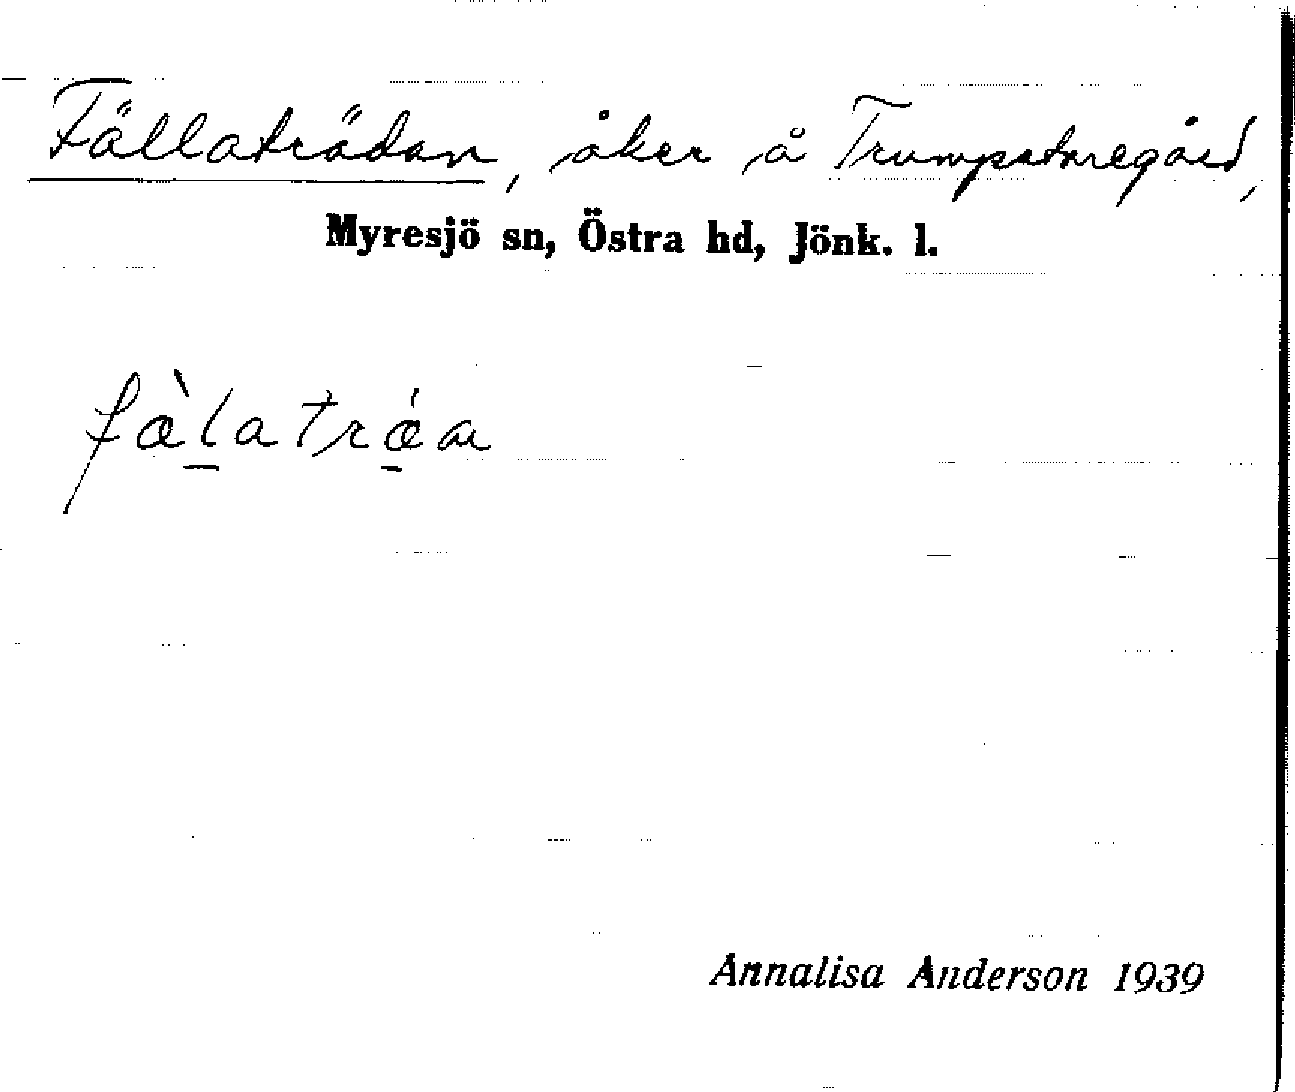 Fällaträdan, åker å Trumpetaregård,
Myresjö sn, Östra hd, Jönk. l.
fæ̀l̲atrǽ̲a
Annalisa Anderson 1939